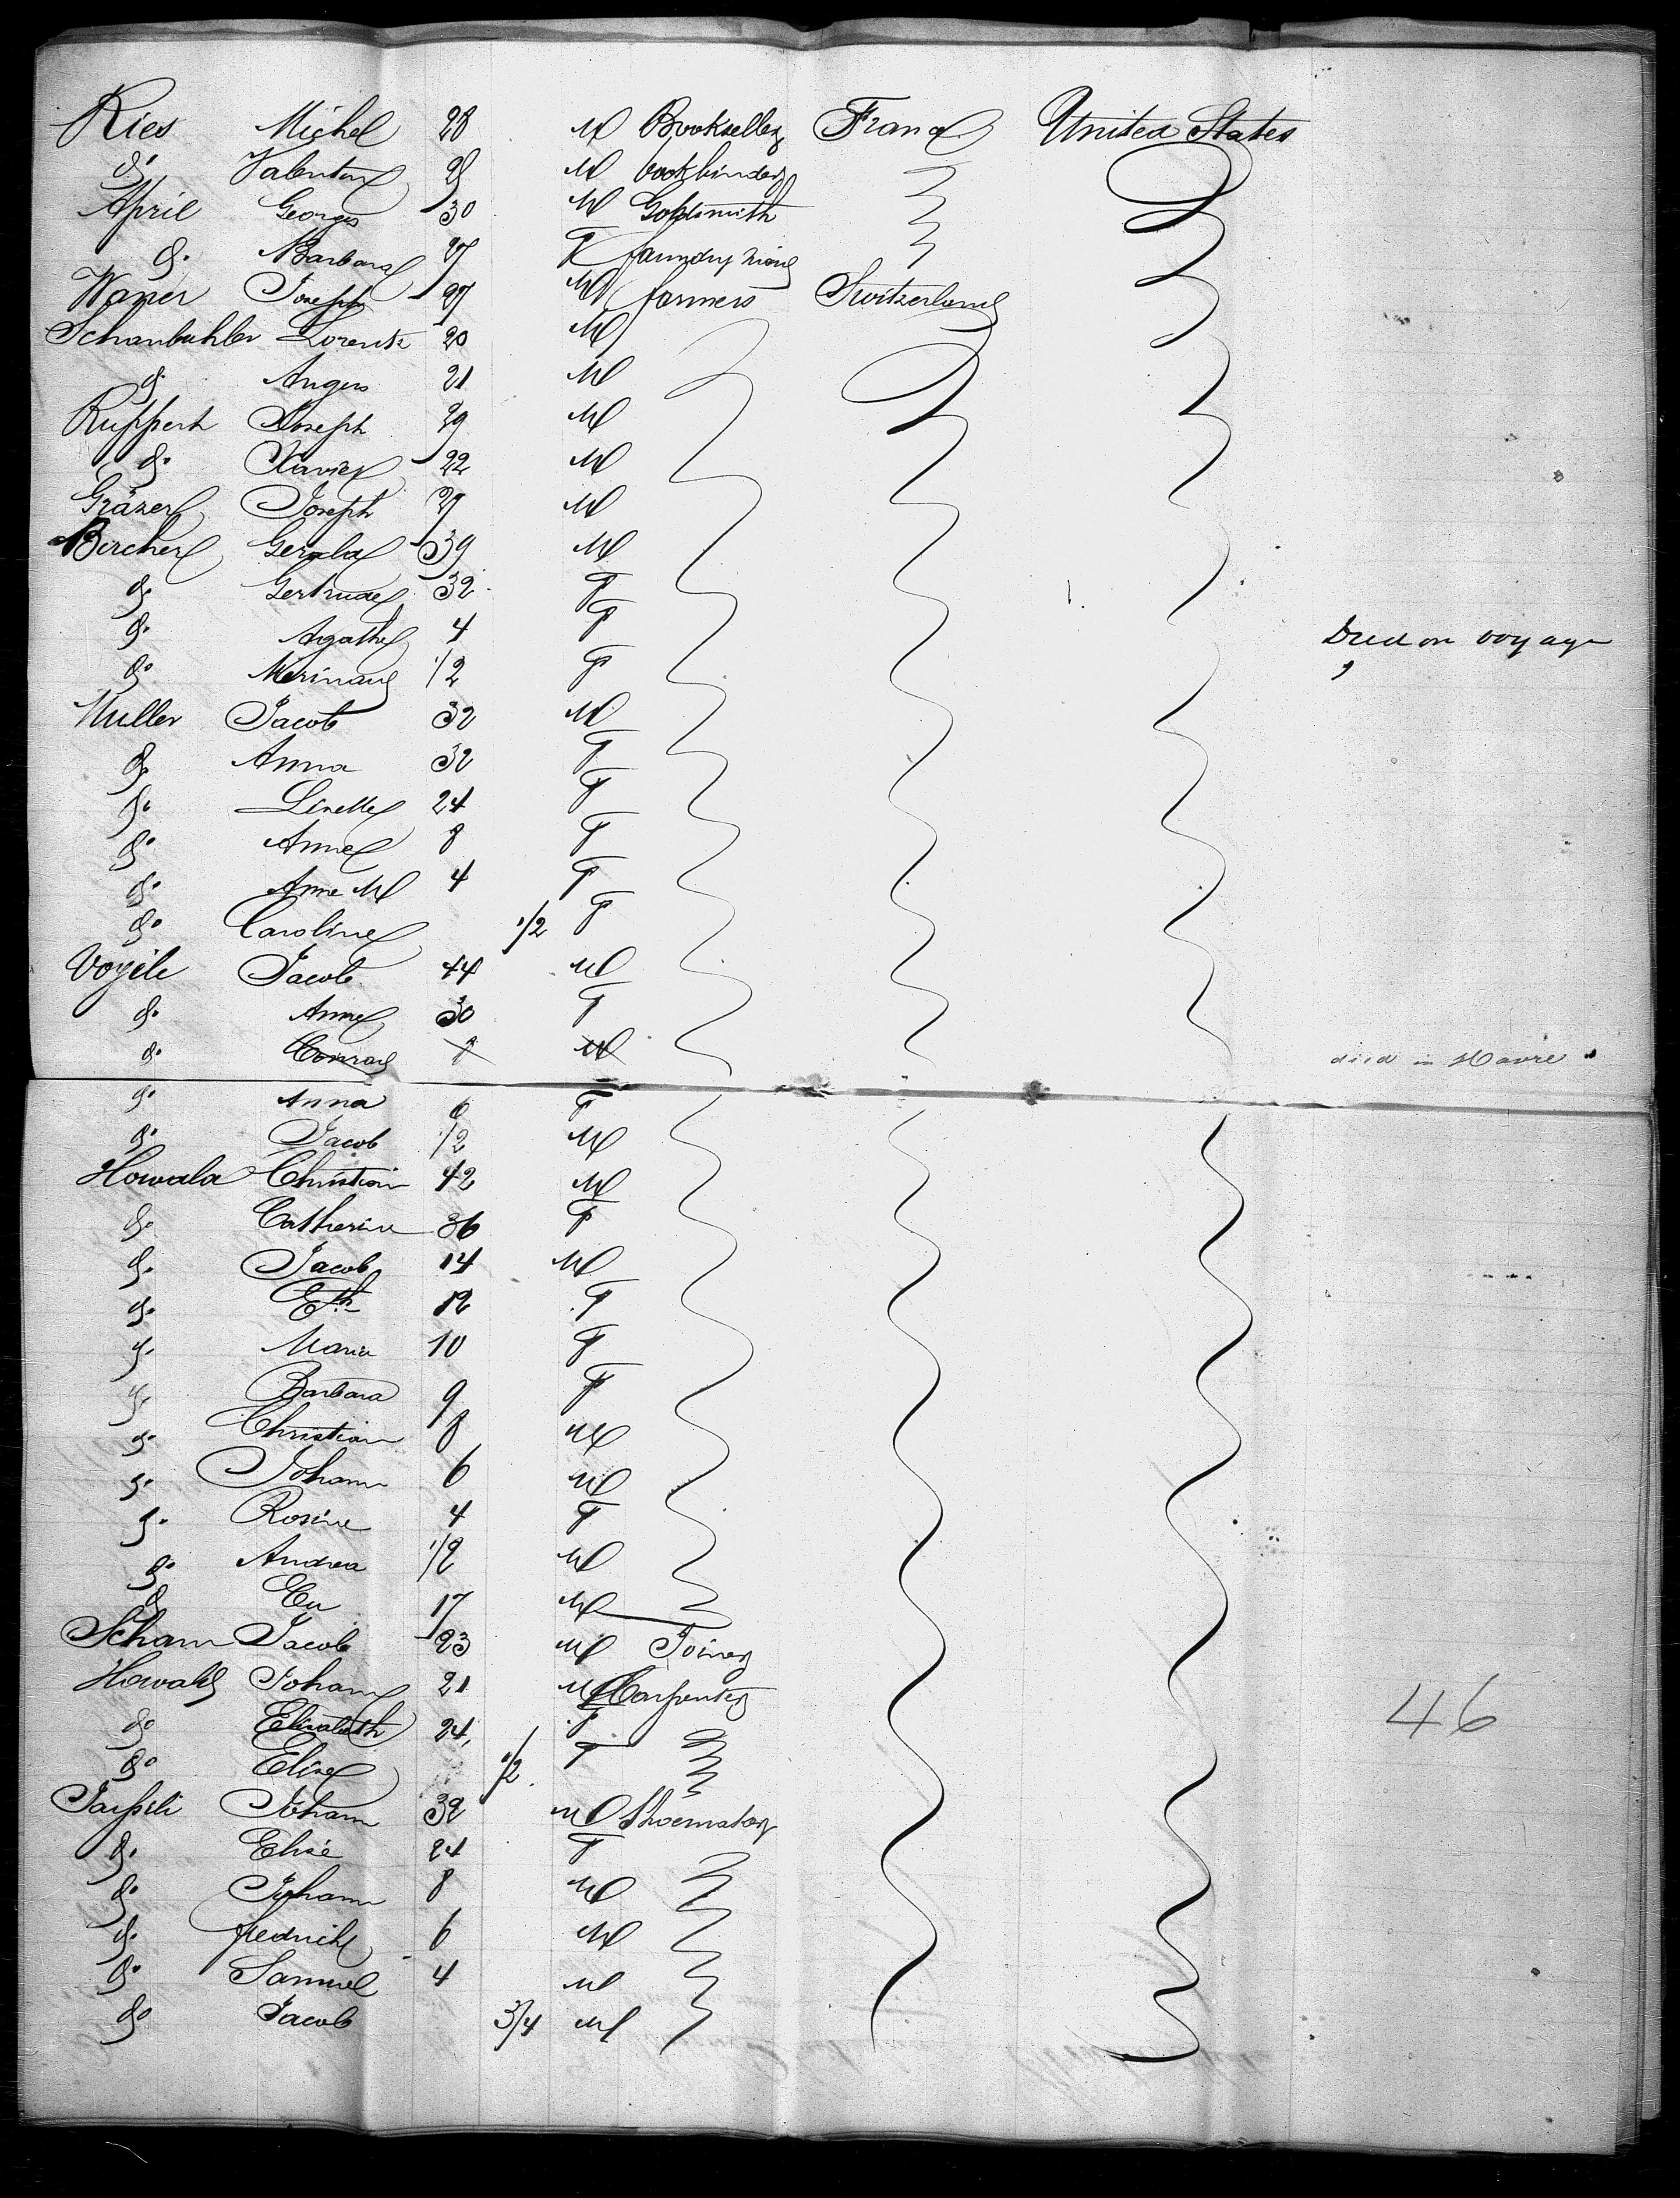 Ries Michel 28 M Bookseller France United States
do Valentin 25 M bookbinder
April Georges 30 M Goldsmith
do Barbara 27 F
Waner Joseph 27 M farmers Switzerland
Schanbuhler Lorentz 20 M
do 21 M
Ruppert Joseph 29 M
do Xavier 22 M
Gräzer Joseph 27 M
Bircher Gerald 39 M
do Gertrude 32 F
do Agathe 4 F Died on voyage
do 1/2 F "
Muller Jacob 32 M
do Anna 32 F
do Linette 24 F
do Anne 8 F
do Anne M 4 F
do Caroline 1/2 F
Vogele Jacob 44 M
do Anne 30 F
do Conrad 8 M died in Havre
do Anna 6 F
do Jacob 1/2 M
Howald Christian 42 M
do Catherine 36 F
do Jacob 14 M
do Eth 12 F
do Maria 10 F
do Barbara 9 F
do Christian 8 M
do Johann 6 M
do Rosine 4 F
do Andrea 1/2 M
do 17 M
Scham Jacob 23 M Joiner
Howald Johann 21 M Carpenter
do Elisabeth 24 F
do Elise 1/2 F
Johann 32 M Shoemaker
do Elise 24 F
do Johann 8 M
do fredrich 6 M
do Samuel 4 M
do Jacob 3/4 M
46